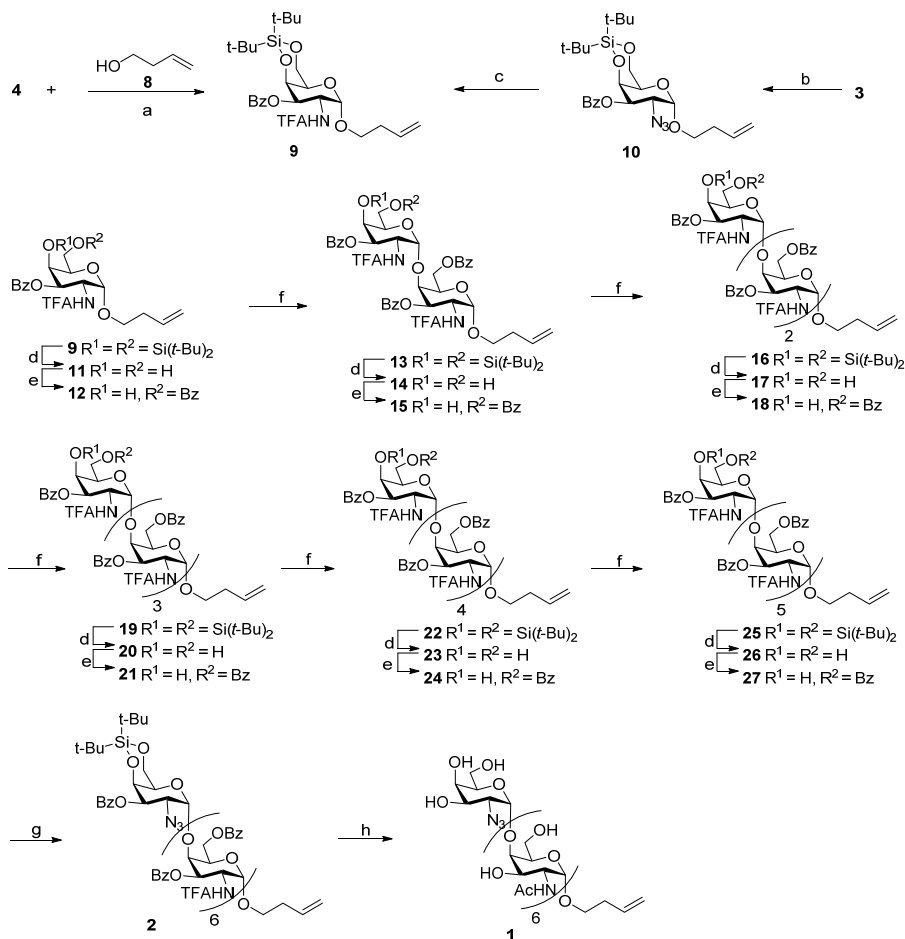 t-Bu
t-Bu Si O
O
HO
8
4 + a
O
BzO
TFAHN
O
9
c
t-Bu
t-Bu Si O
O
O
BzO
N3
O
10
b
3
OR1 OR2
O
BzO
TFAHN
O
d 9 R1 = R2 = Si(t-Bu)2
e 11 R1 = R2 = H
12 R1 = H, R2 = Bz
f
OR1 OR2
O
BzO
TFAHN
O OBz
O
BzO
TFAHN
O
d 13 R1 = R2 = Si(t-Bu)2
e 14 R1 = R2 = H
15 R1 = H, R2 = Bz
f
OR1 OR2
O
BzO
TFAHN
O OBz
O
BzO
TFAHN
O
2
d 16 R1 = R2 = Si(t-Bu)2
e 17 R1 = R2 = H
18 R1 = H, R2 = Bz
f
OR1 OR2
O
BzO
TFAHN
O OBz
O
BzO
TFAHN
O
3
d 19 R1 = R2 = Si(t-Bu)2
e 20 R1 = R2 = H
21 R1 = H, R2 = Bz
f
OR1 OR2
O
BzO
TFAHN
O OBz
O
BzO
TFAHN
O
4
d 22 R1 = R2 = Si(t-Bu)2
e 23 R1 = R2 = H
24 R1 = H, R2 = Bz
f
OR1 OR2
O
BzO
TFAHN
O OBz
O
BzO
TFAHN
O
5
d 25 R1 = R2 = Si(t-Bu)2
e 26 R1 = R2 = H
27 R1 = H, R2 = Bz
g
t-Bu
t-Bu Si O
O
O
BzO
N3
O OBz
O
BzO
TFAHN
O
6
2
h
OH OH
O
HO
N3
O OH
O
HO
AcHN
O
6
1